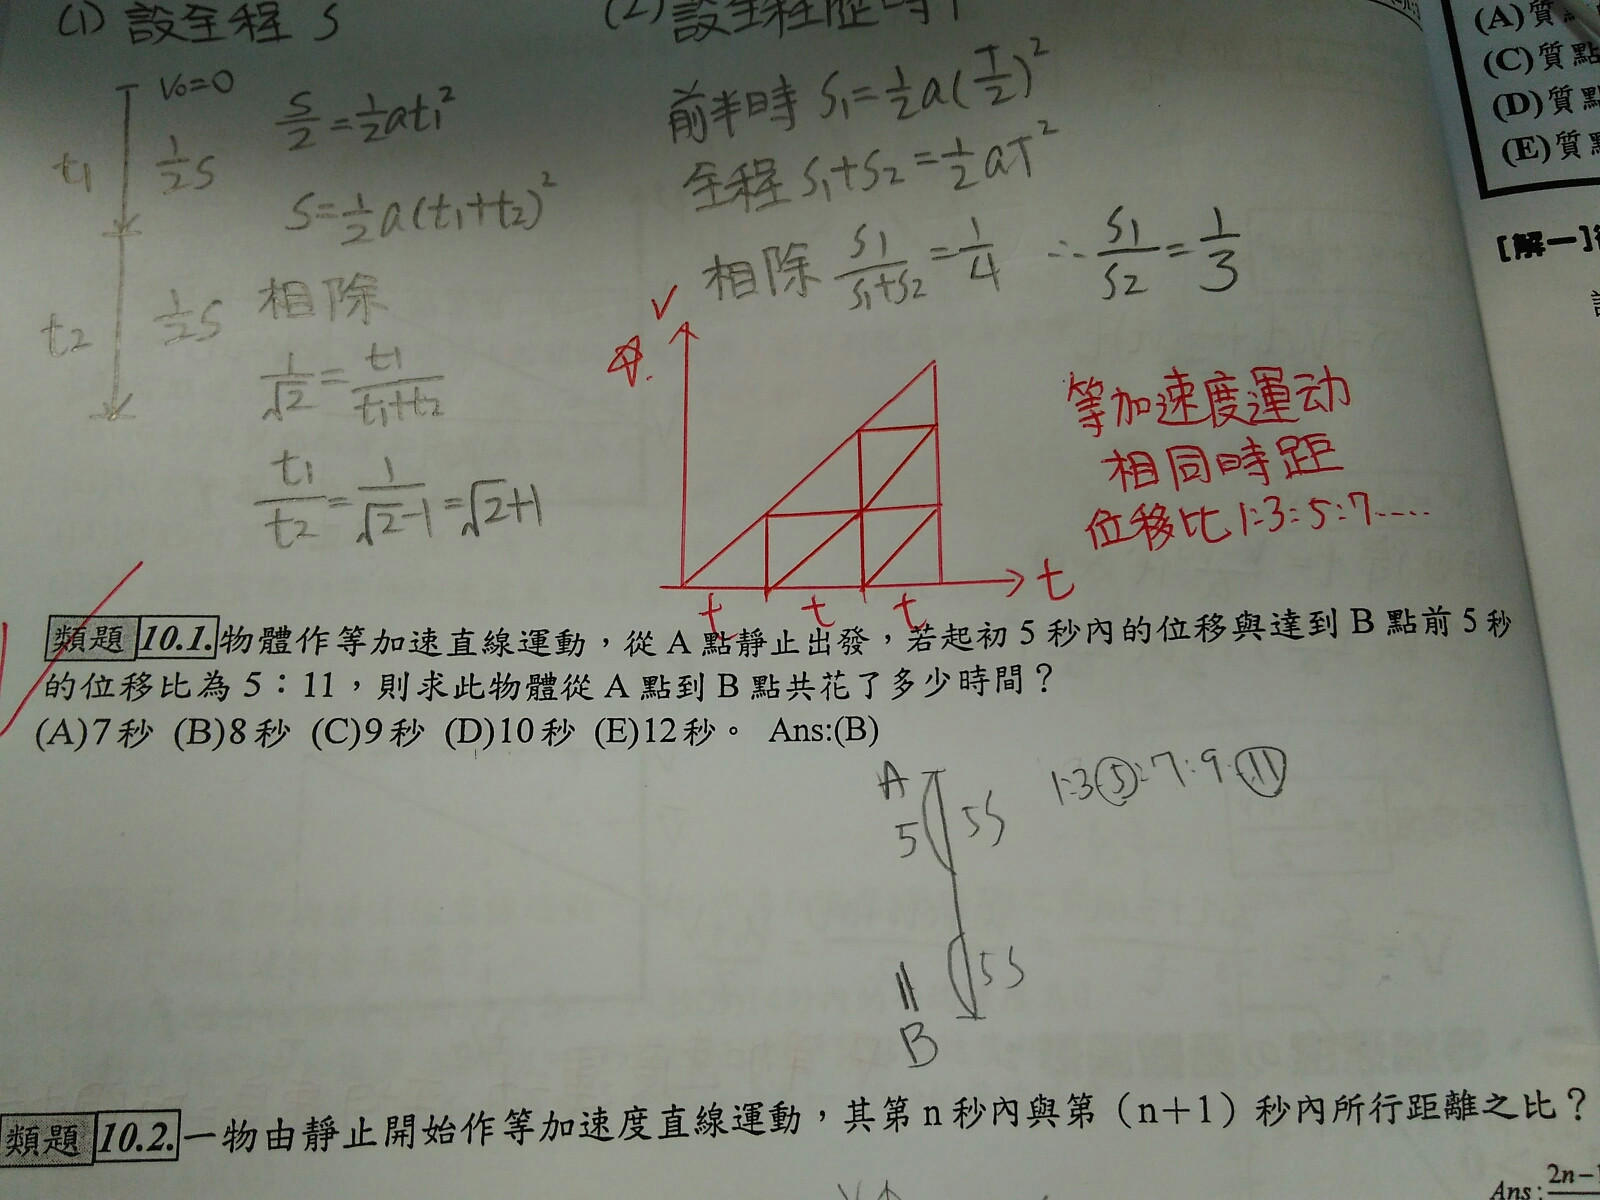 (1) 設全程 S
V₀=0
t₁
½S
t₂
½S
S/2=½at₁²
S=½a(t₁+t₂)²
相除
1/√2=t₁/(t₁+t₂)
t₁/t₂=1/(√2-1)=√2+1
(2) 設全程歷時T
前半時 S₁=½a(T/2)²
全程 S₁+S₂=½aT²
相除 S₁/(S₁+S₂)=1/4 ∴ S₁/S₂=1/3
V
t t t
t
等加速度運动
相同時距
位移比 1:3:5:7....
(A)質
(C)質點
(D)質點
(E)質點
[解一]
類題 10.1. 物體作等加速直線運動，從 A 點靜止出發，若起初 5 秒內的位移與達到 B 點前 5 秒
的位移比為 5：11，則求此物體從 A 點到 B 點共花了多少時間？
(A)7 秒 (B)8 秒 (C)9 秒 (D)10 秒 (E)12 秒。 Ans:(B)
A
5
5S
11
5S
B
1:3:5:7:9:11
類題 10.2. 一物由靜止開始作等加速度直線運動，其第 n 秒內與第（n＋1）秒內所行距離之比？
Ans: 2n−1